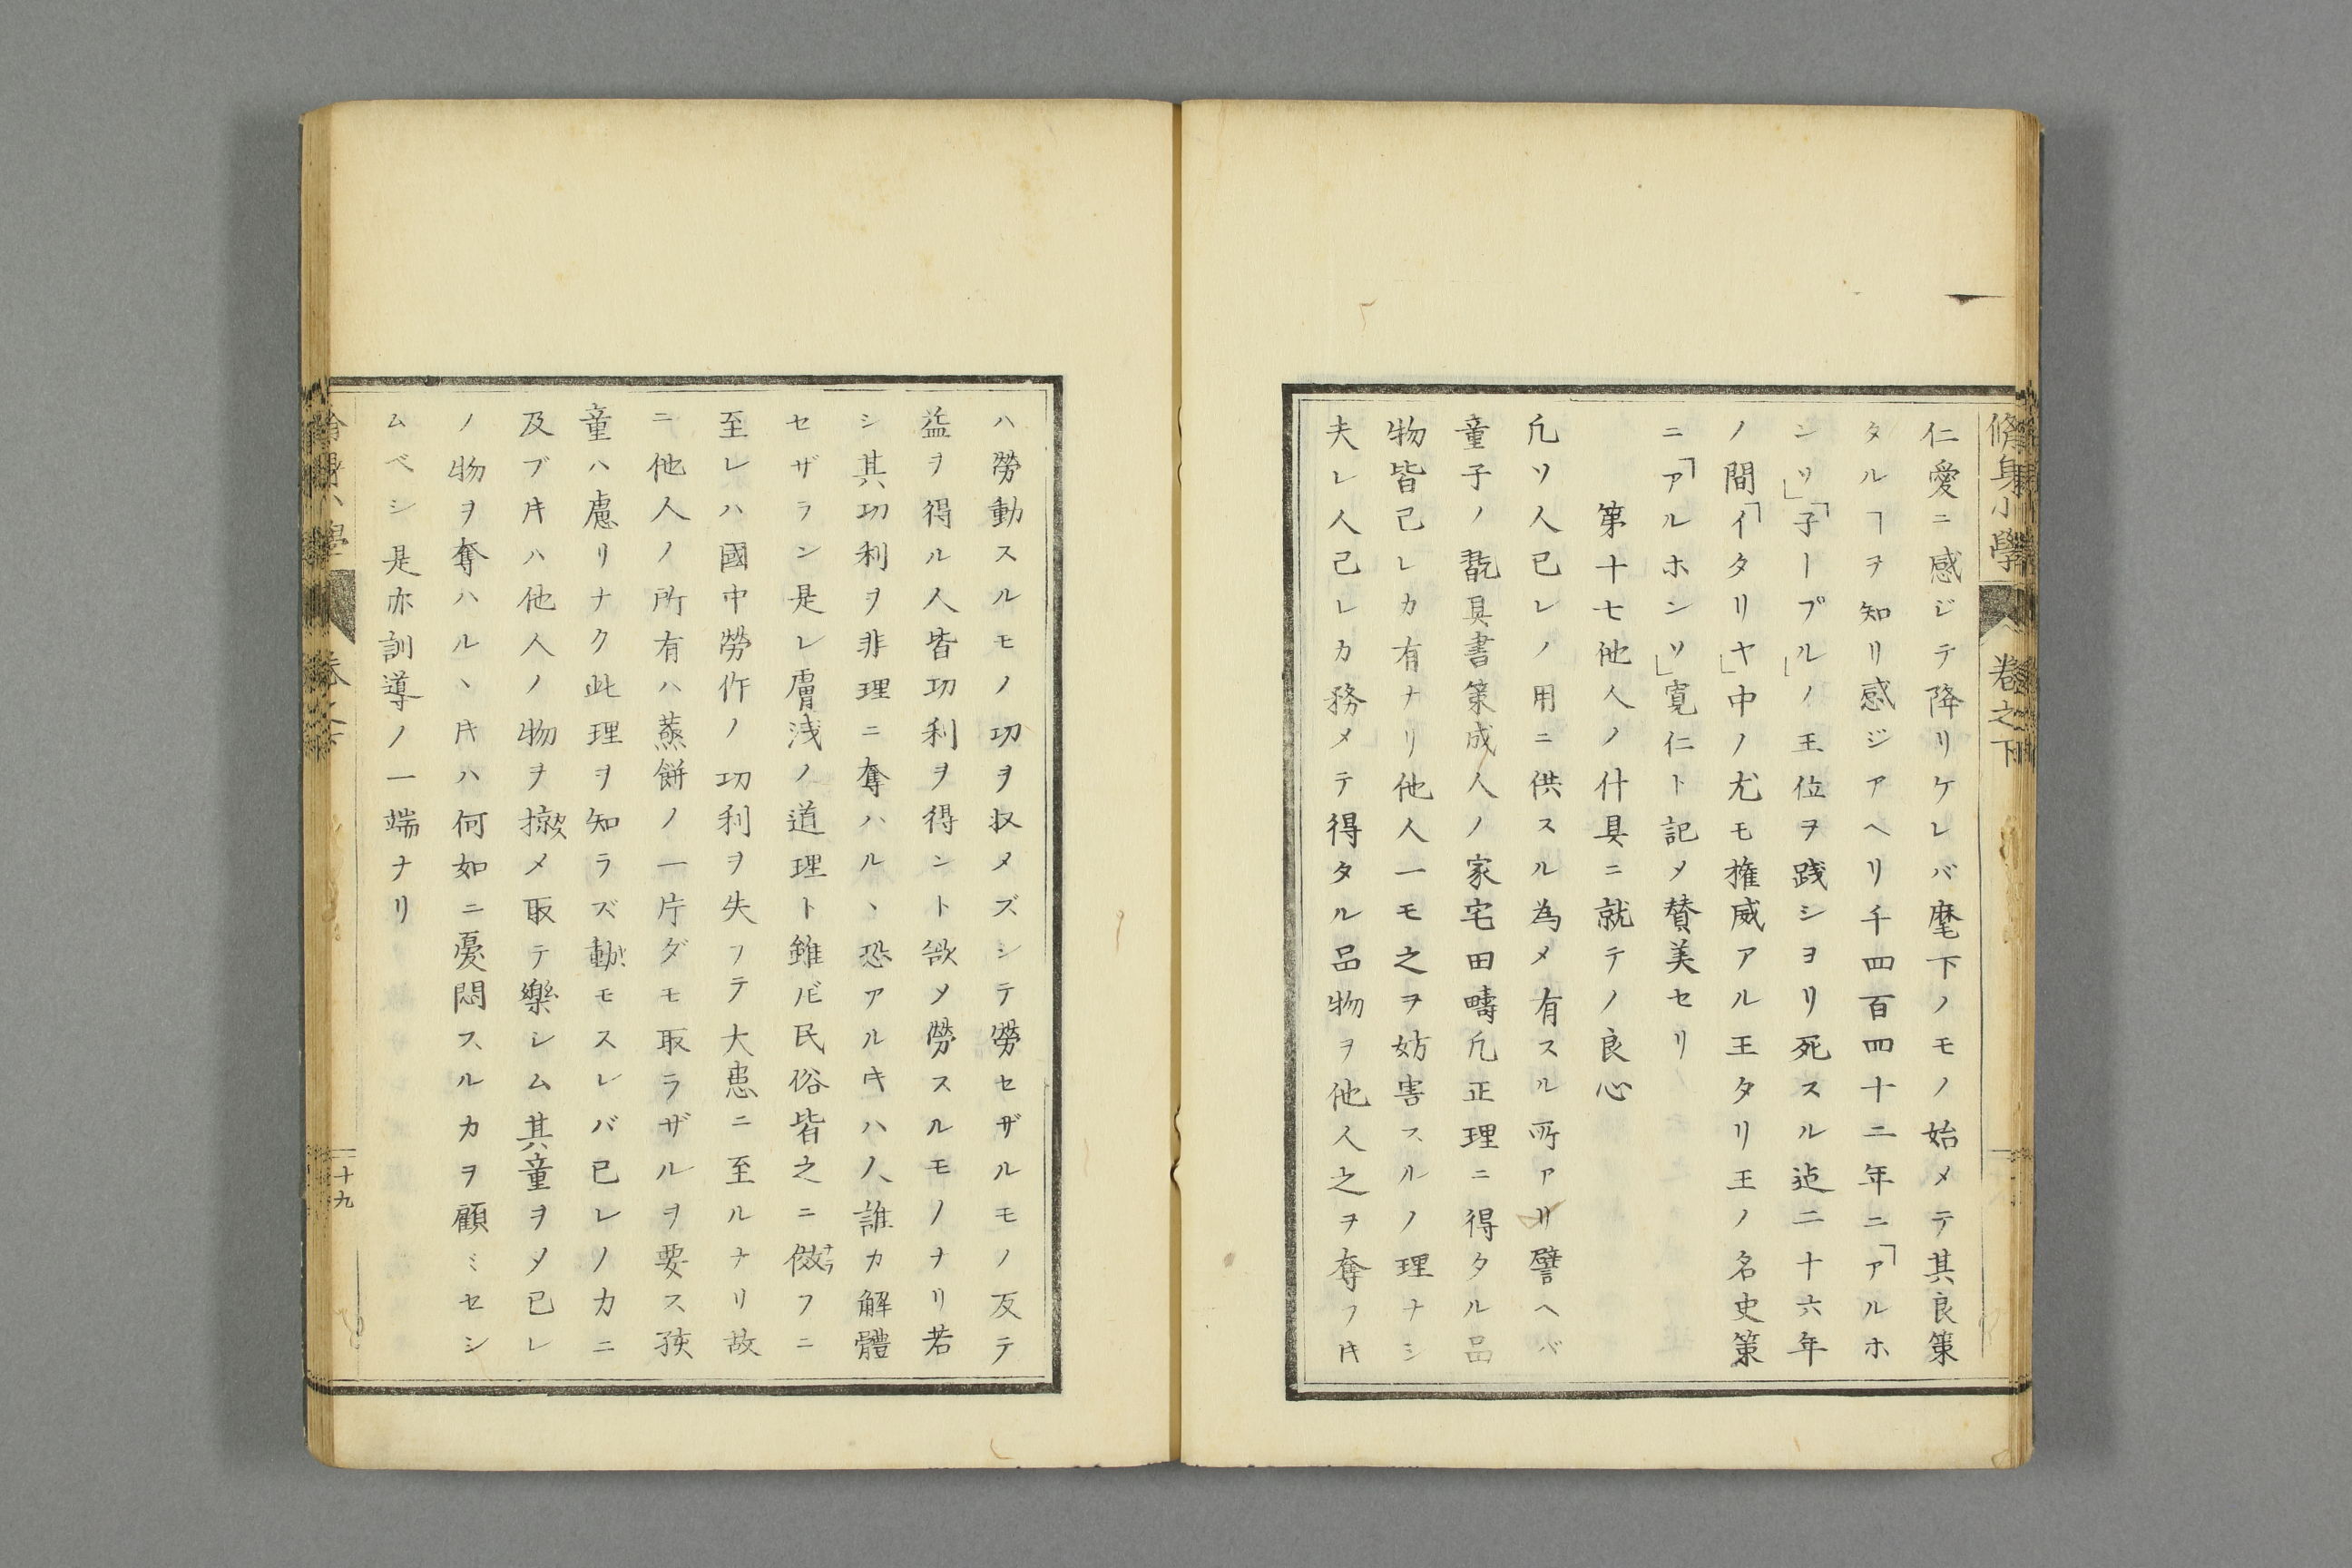 脩身小學 卷之下
仁愛ニ感ジテ降リケレバ麾下ノモノ始メテ其良策
タルヿヲ知リ感ジアヘリ千四百四十二年ニ「アルホ
ンソ」「子ープル」ノ王位ヲ践ショリ死スル迠二十六年
ノ間「イタリヤ」中ノ尤モ権威アル王タリ王ノ名史策
ニ「アルホンソ」寛仁ト記メ賛美セリ
第十七他人ノ什具ニ就テノ良心
凡ソ人已レノ用ニ供スル為メ有スル所アリ譬ヘバ
童子ノ翫具書策成人ノ家宅田疇凡正理ニ得タル品
物皆己レカ有ナリ他人一モ之ヲ妨害スルノ理ナシ
夫レ人己レカ務メテ得タル品物ヲ他人之ヲ奪フ𪜈
ハ勞動スルモノ功ヲ収メズシテ勞セザルモノ反テ
益ヲ得ル人皆功利ヲ得ント欲メ勞スルモノナリ若
シ其功利ヲ非理ニ奪ハルヽ恐アルキハ人誰カ解體
セザラン是レ膚浅ノ道理ト雖𪜈民俗皆之ニ傚フニ
至レハ國中勞作ノ功利ヲ失フテ大患ニ至ルナリ故
ニ他人ノ所有ハ蒸餅ノ一片ダモ取ラザルヲ要ス孩
童ハ慮リナク此理ヲ知ラズ動モスレバ已レノカニ
及ブキハ他人ノ物ヲ掠メ取テ樂シム其童ヲメ已レ
ノ物ヲ奪ハルヽキハ何如ニ憂悶スルカヲ顧ミセシ
ムベシ是亦訓導ノ一端ナリ
十九